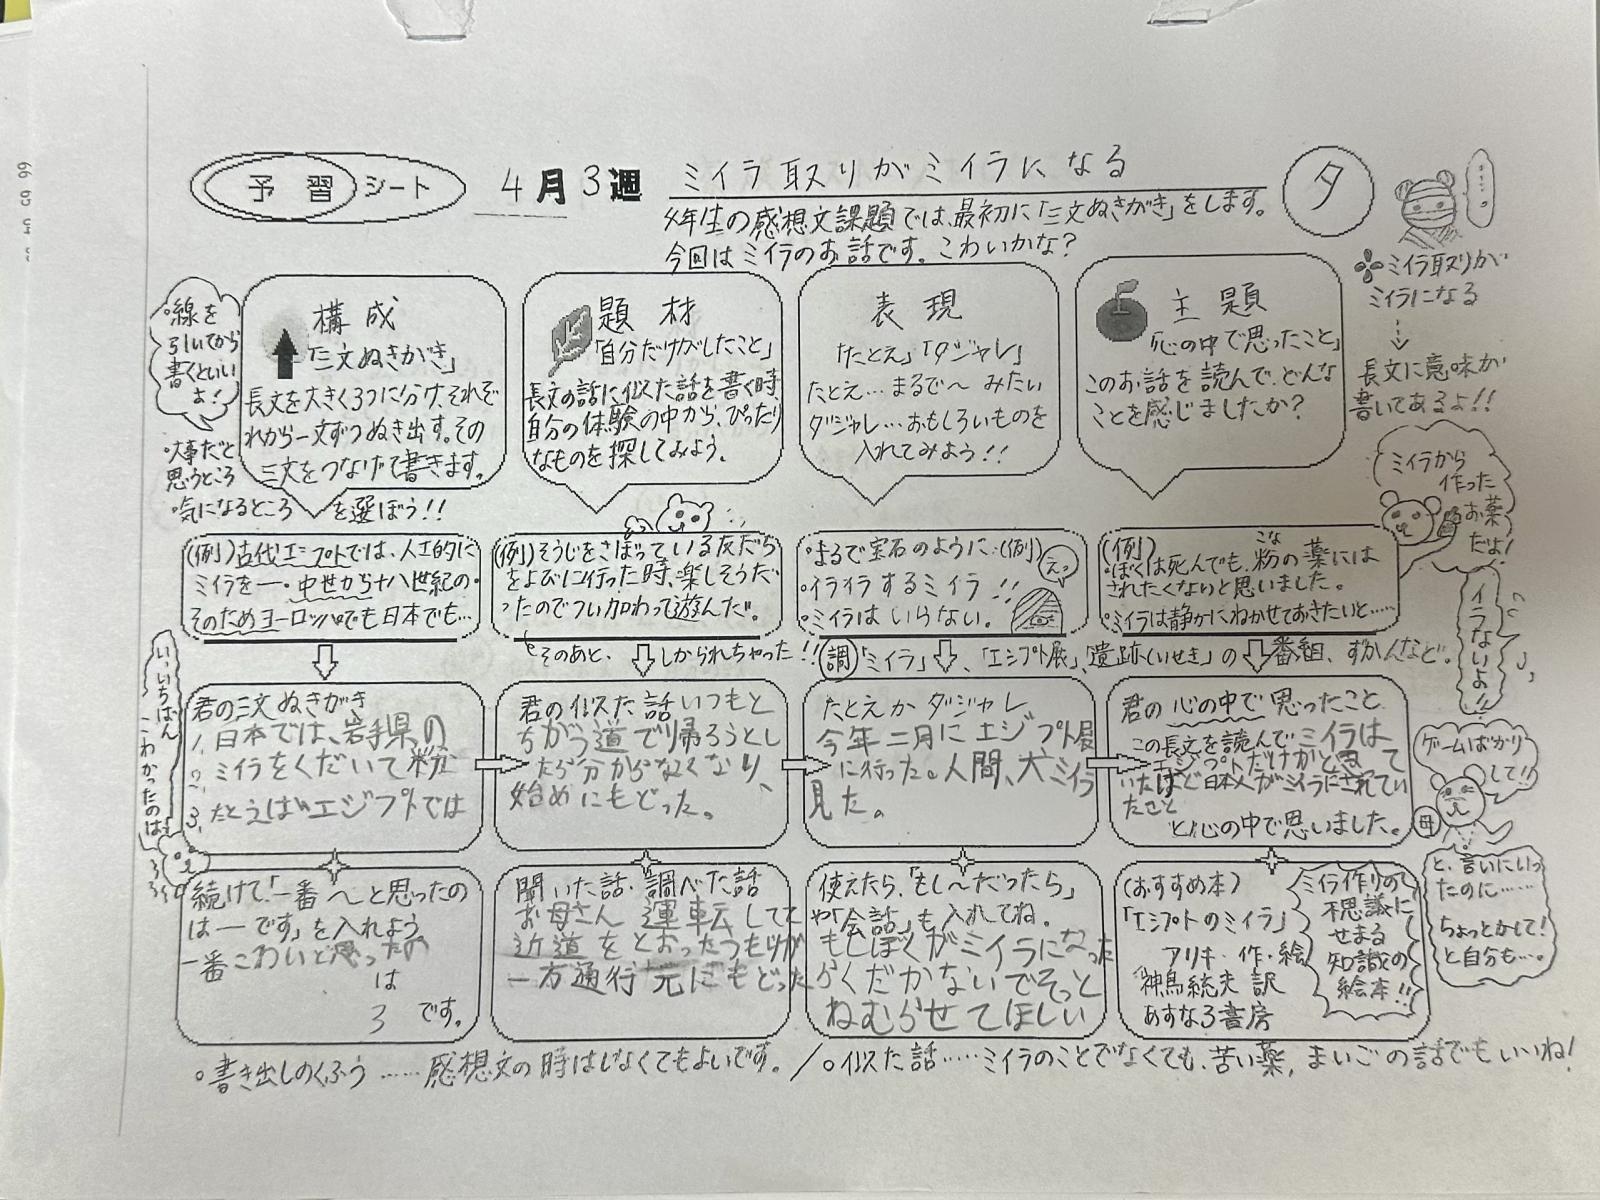 予習シート
4月3週
ミイラ取りがミイラになる
タ
4年生の感想文課題では、最初に「三文ぬきがき」をします。
今回はミイラのお話です。こわいかな?
…。
ミイラ取りが
ミイラになる
長文に意味が
書いてあるよ!!
・線を
引いてから
書くといい
よ!
構成
「三文ぬきがき」
長文を大きく3つに分け、それぞ
れから一文ずつぬき出す。その
三文をつなげて書きます。
・大事だと
思うところ
・気になるところ を選ぼう!!
題材
「自分だけがしたこと」
長文の話に似た話を書く時、
自分の体験の中から、ぴったり
なものを探してみよう。
表現
「たとえ」「ダジャレ」
たとえ…まるで〜みたい
ダジャレ…おもしろいものを
入れてみよう!!
主題
「心の中で思ったこと」
このお話を読んで、どんな
ことを感じましたか?
ミイラから
作った
お薬
だよ!
(例)古代エジプトでは、人工的に
ミイラを一・中世から十八世紀の・
そのためヨーロッパでも日本でも…
(例)そうじをさぼっている友だち
をよびに行った時、楽しそうだ
ったのでつい加わって遊んだ。
そのあと、しかられちゃった!!
・まるで宝石のように・(例)
・イライラするミイラ!!
・ミイラはいらない。
えっ
(例)
・ぼくは死んでも、粉の薬には
こな
されたくないと思いました。
・ミイラは静かにねかせておきたいと……
イラないよ!!
調「ミイラ」、「エジプト展」、「遺跡(いせき)」の番組、ずかんなど。
い、いちばん
こわかったのは…
君の三文ぬきがき
1、日本では、岩手県の
2、ミイラをくだいて粉
3、たとえばエジプトでは
君の似た話 いつもと
ちがう道で帰ろうとし
たら分からなくなり、
始めにもどった。
たとえかダジャレ
今年二月にエジプト展
に行った。人間、犬、ミイラ
見た。
君の心の中で思ったこと
この長文を読んでミイラは
エジプトだけかと思って
いたけど日本人がミイラにされてい
たこと
と心の中で思いました。
ゲームばかり
して!!
母
と、言いにいっ
たのに……
ちょっとかして!
と自分も…。
続けて「一番〜と思ったの
は―です」を入れよう
一番こわいと思ったの
は
3 です。
聞いた話・調べた話
お母さん 運転してて
近道をとおったつもりが
一方通行 元にもどった
使えたら、「もし〜だったら」
や「会話」も入れてね。
もしぼくがミイラになった
らくだかないでそっと
ねむらせてほしい
(おすすめ本)
「エジプトのミイラ」
アリキ・作・絵
神鳥統夫 訳
あすなろ書房
ミイラ作りの
不思議に
せまる
知識の
絵本!!
・書き出しのくふう……感想文の時はしなくてもよいです。/・似た話……ミイラのことでなくても、苦い薬、まいごの話でもいいね!